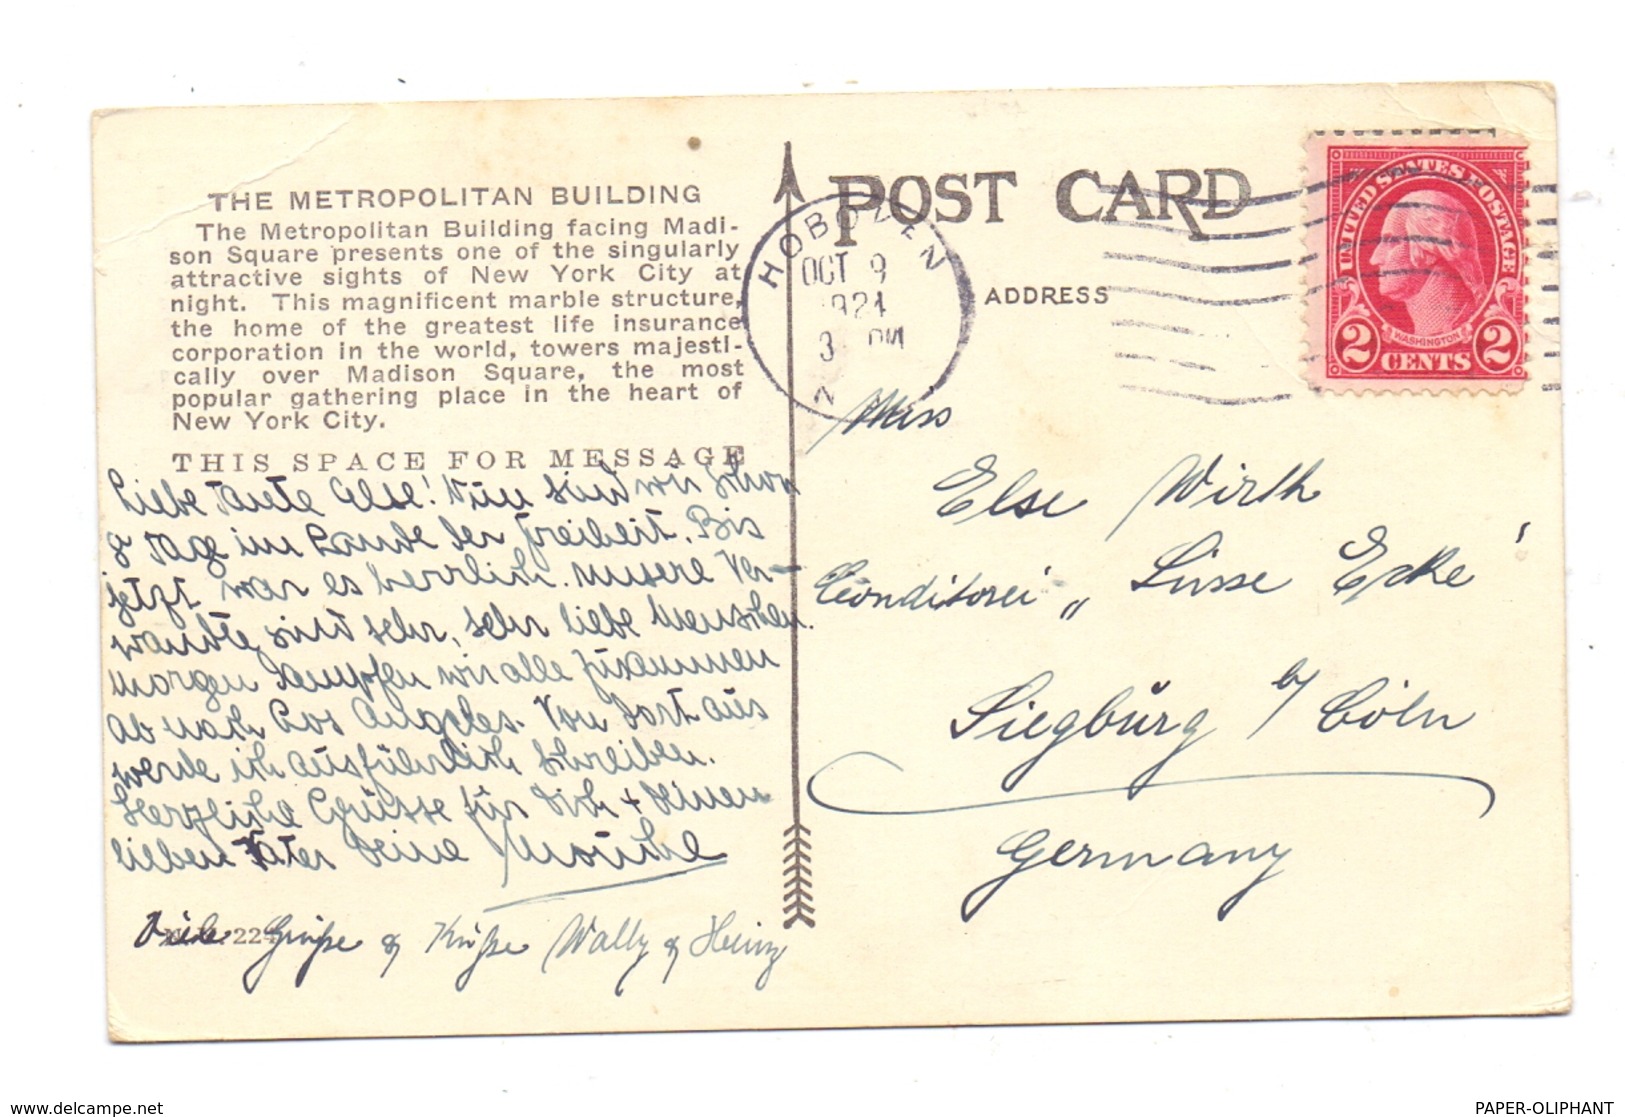 THE METROPOLITAN BUILDING
The Metropolitan Building facing Madi-
son Square presents one of the singularly
attractive sights of New York City at
night. This magnificent marble structure,
the home of the greatest life insurance
corporation in the world, towers majesti-
cally over Madison Square, the most
popular gathering place in the heart of
New York City.
THIS SPACE FOR MESSAGE
Liebe Tante Else! Nun sind wir schon
Tage im Lande der Freiheit. Bis
jetzt war es herrlich. Unsere Ver-
wandte sind sehr, sehr liebe Menschen.
Morgen dampfen wir alle zusammen
ab nach Los Angeles. Von dort aus
werde ich ausführlich schreiben.
Herzliche Grüsse für Dich + Deinen
lieben Vater Deine
Viele Grüße & Küße Wally & Heinz
224
POST CARD
HOBOKEN
OCT 9
1924
3 PM
N
ADDRESS
UNITED STATES POSTAGE
WASHINGTON
2 CENTS 2
Miss
Else Wirth
Conditorei „Süsse Ecke'
Siegburg b/ Cöln
Germany
delcampe.net
PAPER-OLIPHANT